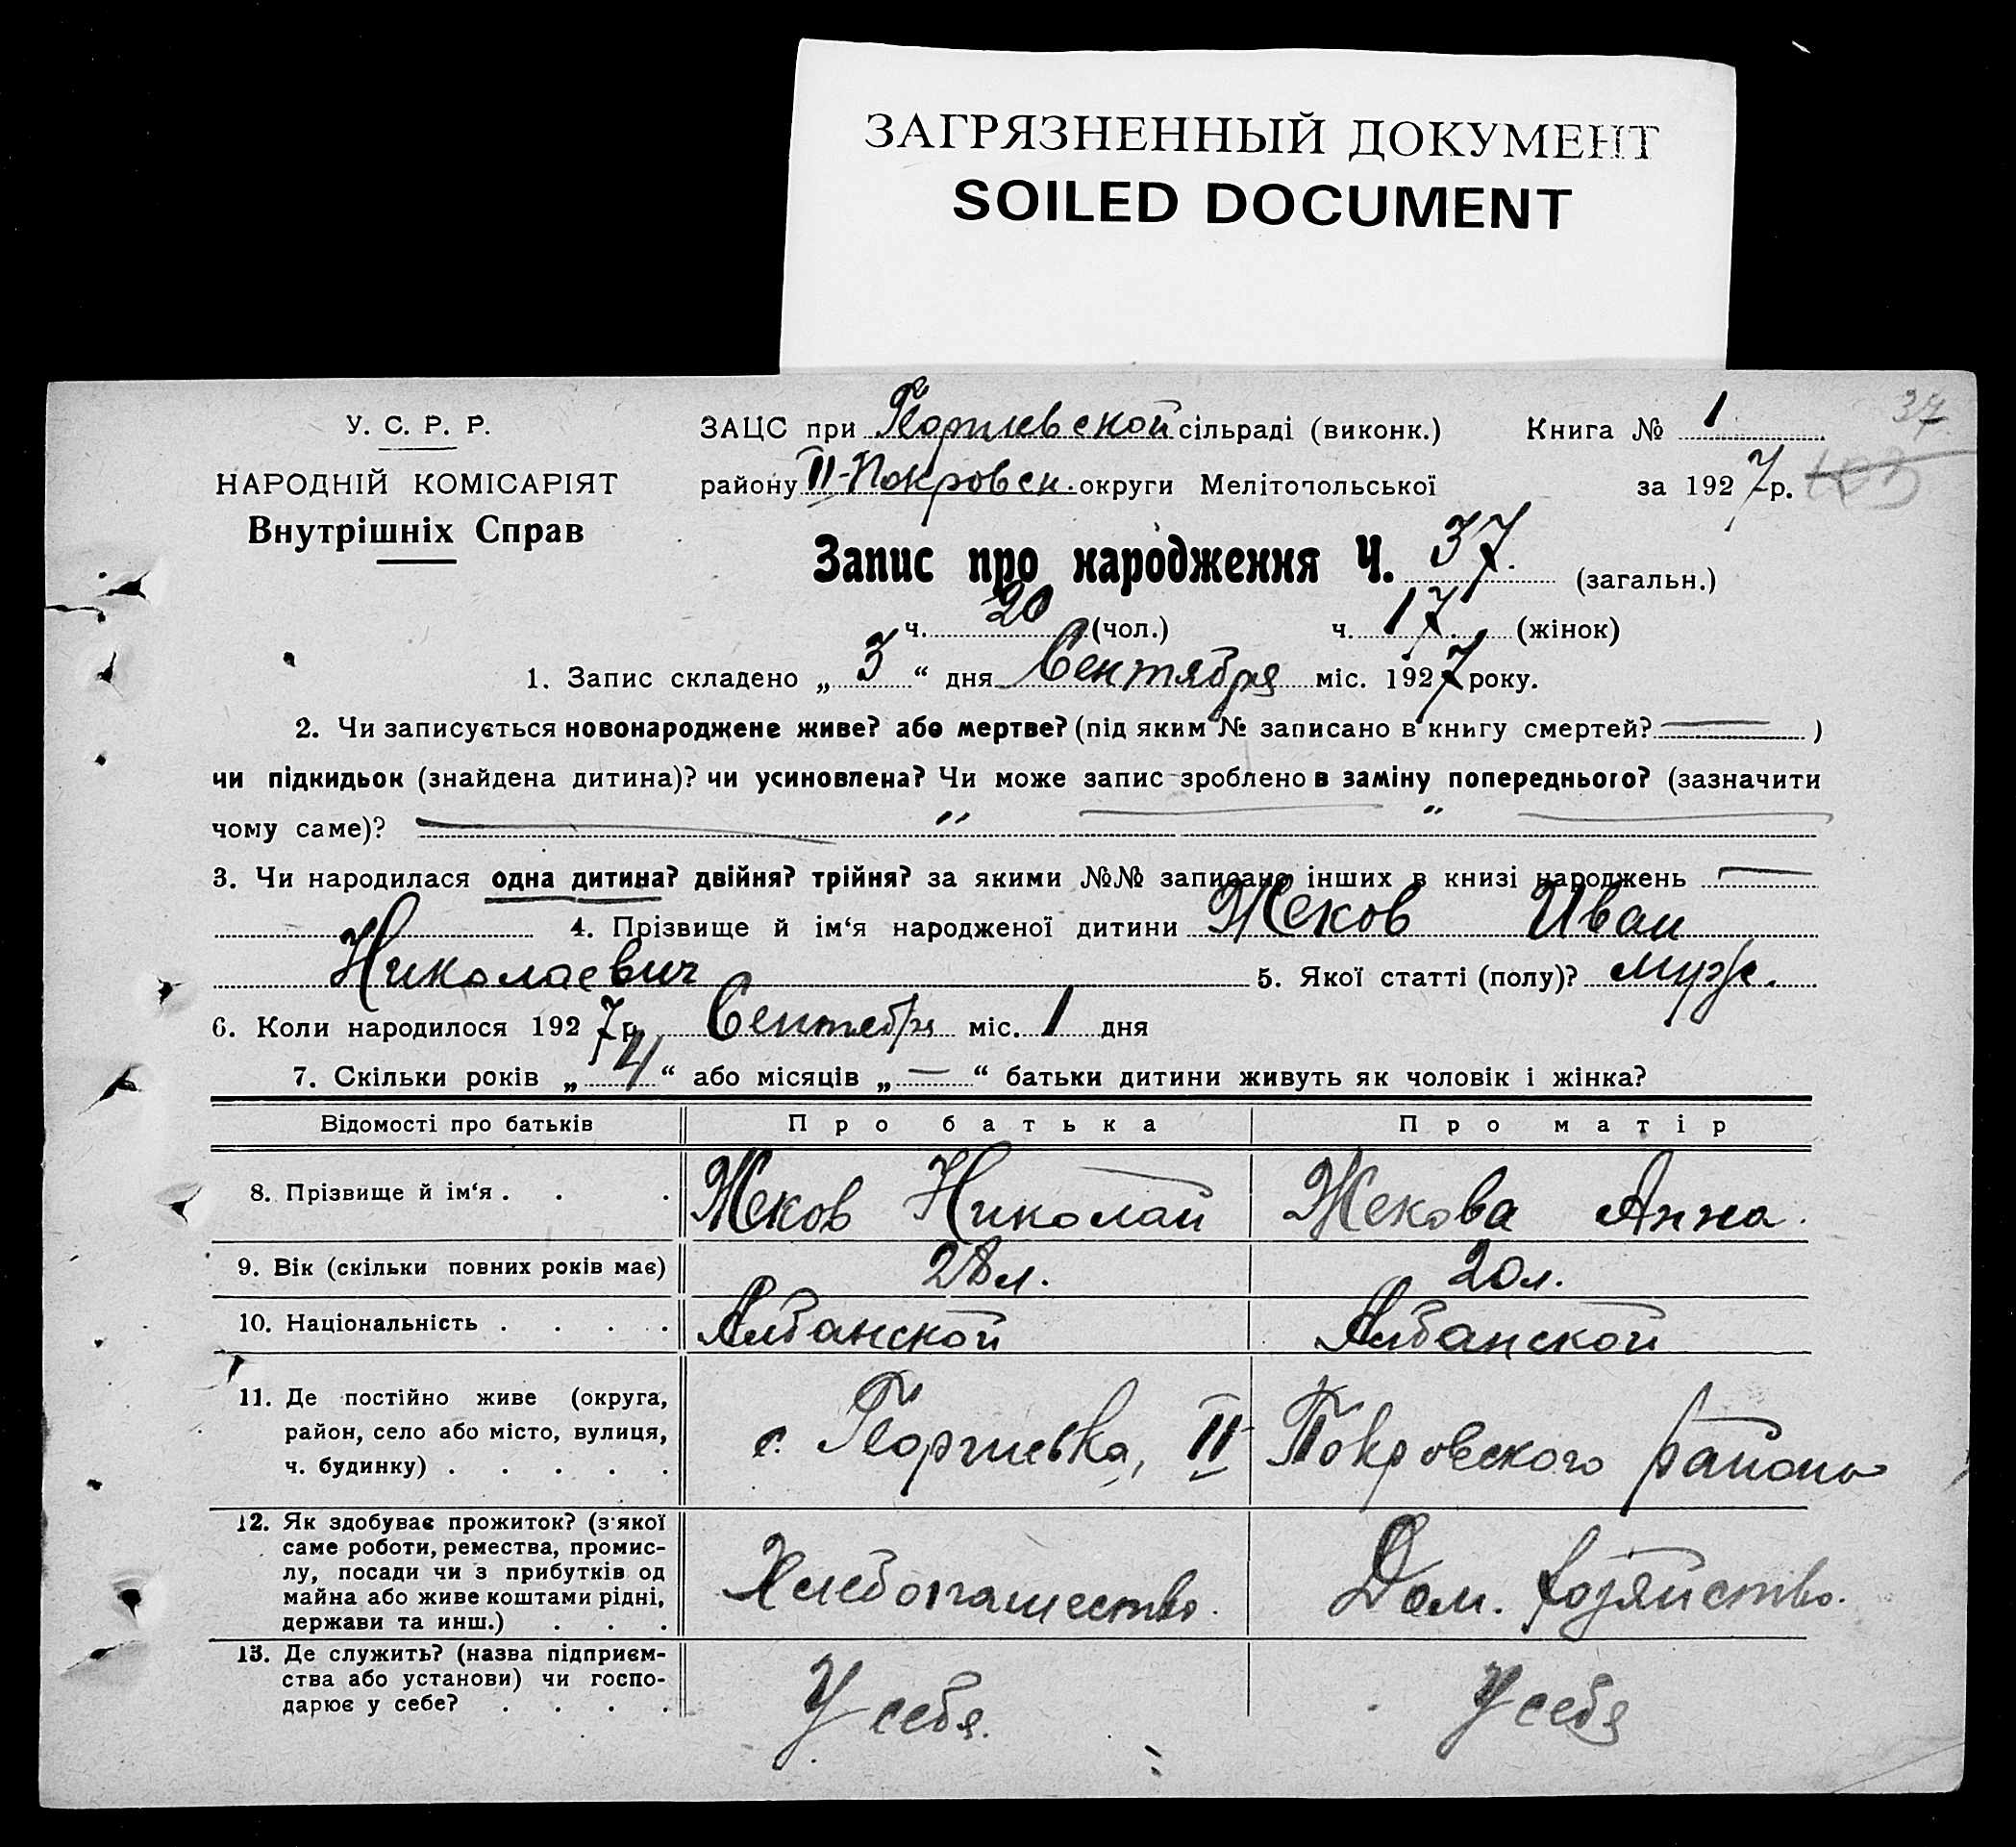 ЗАГРЯЗНЕННЫЙ ДОКУМЕНТ
SOILED DOCUMENT
У. С. Р. Р.
НАРОДНІЙ КОМІСАРІЯТ
Внутрішніх Справ
ЗАЦС при Георгиевской сільраді (виконк.) Книга № 1
37
району II-Покровск. округи Мелітопольської за 1927 р.
103
Запис про народження Ч. 37. (загальн.)
ч. 20 (чол.) ч. 17. (жінок)
1. Запис складено „ 3 “ дня Сентября міс. 1927 року.
2. Чи записується новонароджене живе? або мертве? (під яким № записано в книгу смертей? — )
чи підкидьок (знайдена дитина)? чи усиновлена? Чи може запис зроблено в заміну попереднього? (зазначити
чому саме)? — „ — „ —
3. Чи народилася одна дитина? двійня? трійня? за якими №№ записано інших в книзі народжень —
4. Прізвище й ім‘я народженої дитини Жеков Иван
Николаевич 5. Якої статті (полу)? муж.
6. Коли народилося 1927 р. Сентебря міс. 1 дня
7. Скільки років „ 4 “ або місяців „ — “ батьки дитини живуть як чоловік і жінка?
Відомості про батьків Про батька Про матір
8. Прізвище й ім‘я . . . Жеков Николай Жекова Анна.
9. Вік (скільки повних років має) 28 л. 20 л.
10. Національність . . . . Албанской Албанской
11. Де постійно живе (округа,
район, село або місто, вулиця,
ч. будинку) . . . . . с. Георгиевка, II Покровского района
12. Як здобуває прожиток? (з якої
саме роботи, ремества, промис-
лу, посади чи з прибутків од
майна або живе коштами рідні,
держави та инш.) . . . Хлебопашество. Дом. хозяйство.
13. Де служить? (назва підприєм-
ства або установи) чи госпо-
дарює у себе? . . . . У себя. У себя